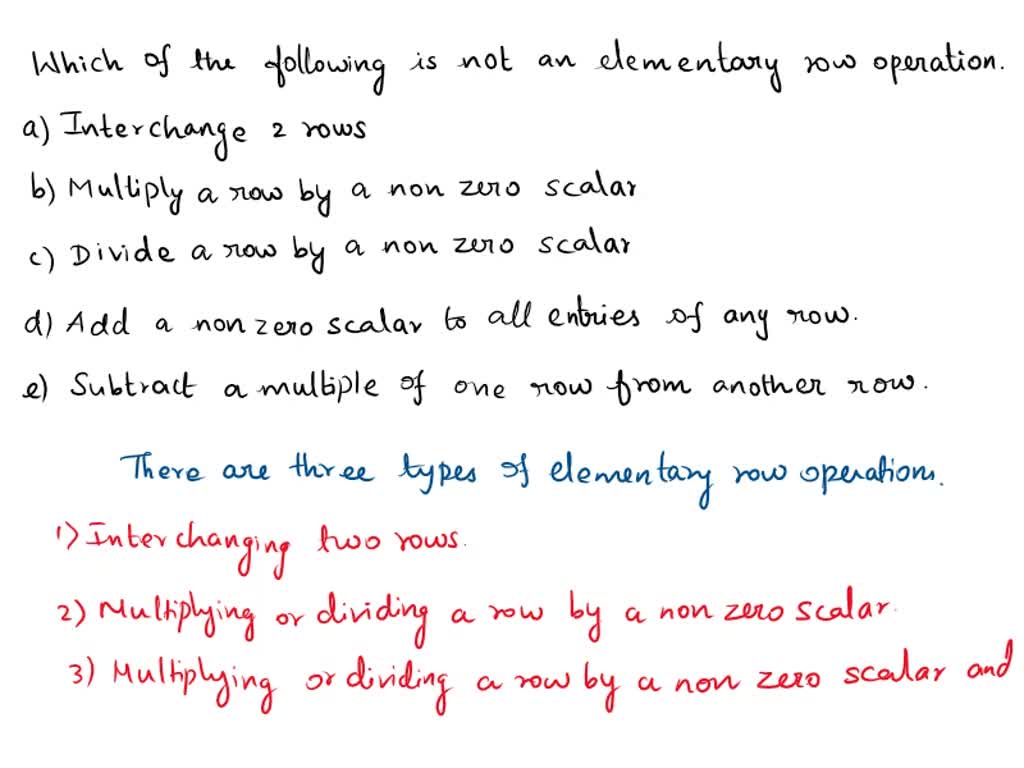 Which of the following is not an elementary row operation.
a) Interchange 2 rows
b) Multiply a row by a non zero scalar
c) Divide a row by a non zero scalar
d) Add a non zero scalar to all entries of any row.
e) Subtract a multiple of one row from another row.
There are three types of elementary row operations.
1) Interchanging two rows.
2) Multiplying or dividing a row by a non zero scalar.
3) Multiplying or dividing a row by a non zero scalar and